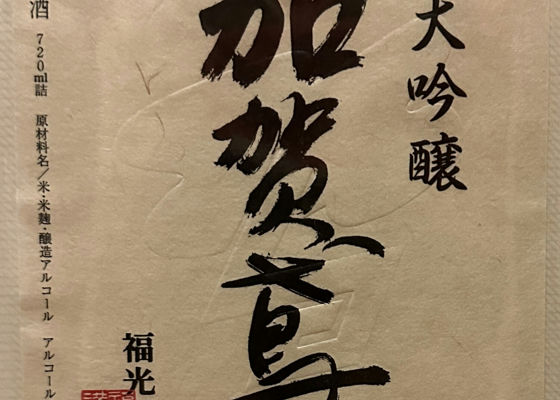 大吟醸
加賀鳶
福光
酒 720ml詰 原材料名/米・米麹・醸造アルコール アルコール